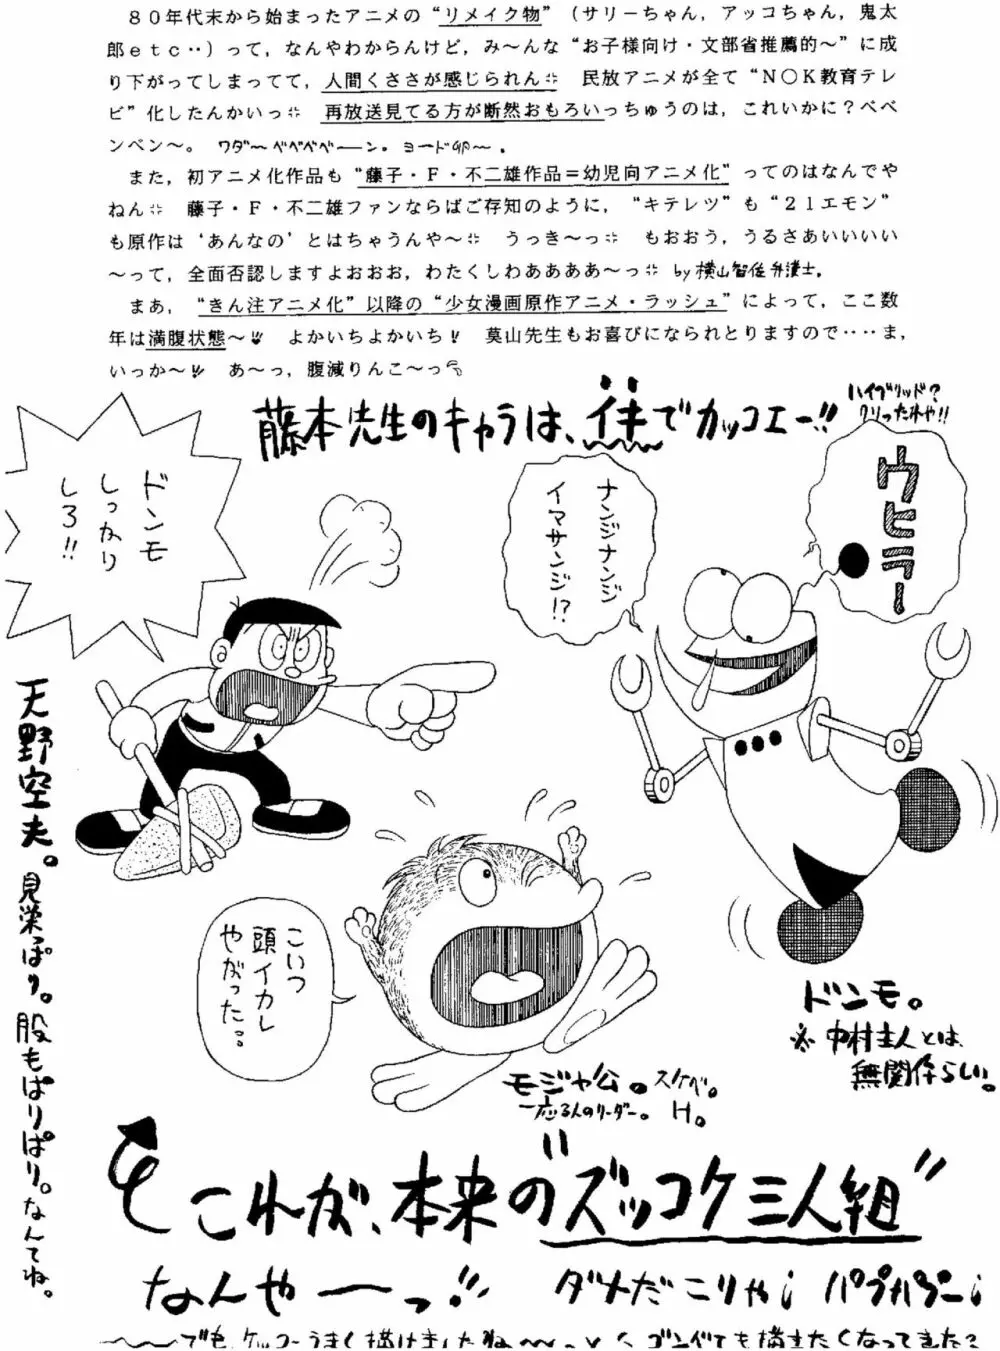 ８０年代末から始まったアニメの“リメイク物”（サリーちゃん，アッコちゃん，鬼太
郎ｅｔｃ‥）って，なんやわからんけど，み～んな“お子様向け・文部省推薦的～”に成
り下がってしまってて，人間くささが感じられん 民放アニメが全て“Ｎ○Ｋ教育テレ
ビ”化したんかいっ 再放送見てる方が断然おもろいっちゅうのは，これいかに？ベベ
ンベン～。 ワダ～ベベベベーン。ヨード卵～.
また，初アニメ化作品も“藤子・Ｆ・不二雄作品＝幼児向アニメ化”ってのはなんでや
ねん 藤子・Ｆ・不二雄ファンならばご存知のように，“キテレツ”も“２１エモン”
も原作は‘あんなの’とはちゃうんや～ うっき～っ もおおう，うるさあいいいい
～って，全面否認しますよおおお，わたくしわああああ～っ by 横山智佐弁護士。
まあ，“きん注アニメ化”以降の“少女漫画原作アニメ・ラッシュ”によって，ここ数
年は満腹状態～!! よかいちよかいち! 莫山先生もお喜びになられとりますので‥‥ま，
いっか～!! あ～っ，腹減りんこ～っ
藤本先生のキャラは、イキでカッコエー!!
ハイブリッド?
クリったれや!!
ウヒラー
ナンジナンジ
イマサンジ!?
ドンモ
しっかり
しろ!!
天野空夫。見栄ぱり。股もぱりぱり。なんてね。
こいつ
頭イカレ
やがった??
ドンモ。
※中村主人とは、
無関係らしい。
モジャ公。スケベ。
一応3人のリーダー。 H。
これが、本来の“ズッコケ三人組”
なんやーっ!! ダメだこりゃ! パプパプー!
～～でも、ケッコーうまく描けましたね～～っ